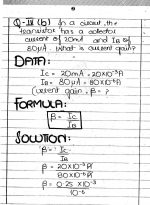 Q-III (b) In a circuit, the
transistor has a collector
current of 20mA and IB of
80μA. What is current gain?
DATA:
Ic = 20mA = 20×10⁻³A
IB = 80μA = 80×10⁻⁶A
Current gain = β = ?
FORMULA:
β = Ic
IB
SOLUTION:
β = Ic
IB
β = 20×10⁻³A
80×10⁻⁶A
β = 0.25 × 10⁻³
10⁻⁶